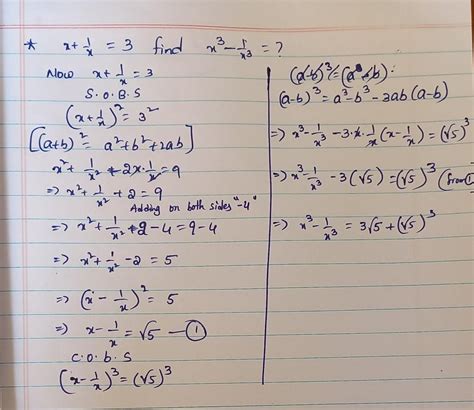 * x + 1/x = 3 find x³ - 1/x³ = ?
Now x + 1/x = 3
S.O.B.S
(x + 1/x)² = 3²
[(a+b)² = a² + b² + 2ab]
x² + 1/x² + 2x·1/x = 9
=> x² + 1/x² + 2 = 9
Adding on both sides "-4"
=> x² + 1/x² + 2 - 4 = 9 - 4
=> x² + 1/x² - 2 = 5
=> (x - 1/x)² = 5
=> x - 1/x = √5 — ①
C.O.B.S
(x - 1/x)³ = (√5)³
(a-b)³ = a³ - b³ - 3ab(a-b)
=> x³ - 1/x³ - 3·x·1/x(x - 1/x) = (√5)³
=> x³ - 1/x³ - 3(√5) = (√5)³ (from ①
=> x³ - 1/x³ = 3√5 + (√5)³